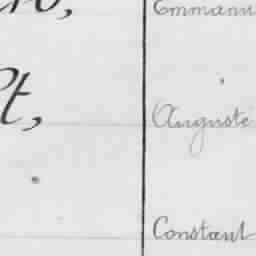 Emmanu
t,
Auguste
Constant